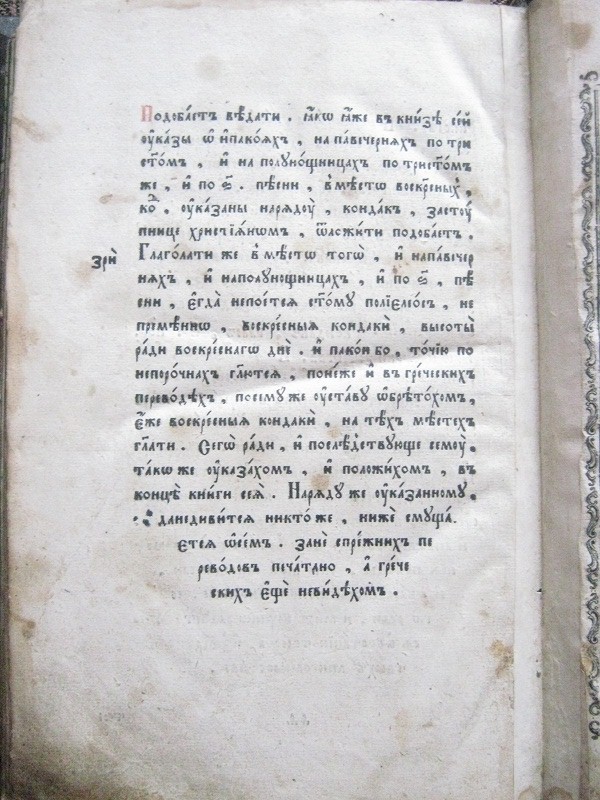 Подобаетъ вѣдати . ꙗкѡ ꙗже в кни́зѣ се́й
ᲂу҆ка́зы ѡ҆ и҆пакоѧхъ , на павечернѧхъ по три
ст҃омъ , и҆ на полуно́щницахъ по трист҃омъ
же , и҆ по ѕ҃ . пѣ́сни , вмѣстѡ воскре́сныхъ ,
ᲂу҆ка́заны нарѧдоу̀ , конда́къ , засто́у
пнице христїѧ́номъ , ѿложи́ти подоба́етъ .
зри̂
Глаго́лати же вмѣстѡ тогѡ̀ , и҆ напа́вечер
нѧхъ , и҆ наполуно́щницахъ , и҆ по ѕ҃ , пѣ
сни , є҆гда̀ непостсѧ ст҃ому полїеле́ѡсъ , не
премѣ́ннѡ , воскре́сныѧ кондаки̂ , высоты̀
ради воскре́снагѡ днѐ . и҆пакои̂ бо , то́чїю по
непоро́чнахъ гл҃ютсѧ , поне́же и҆ въ гре́ческихъ
перево́дѣхъ , посему́ же ᲂу҆ста́ву ѡ҆брѣто́хомъ ,
є҆́же воскре́сныѧ кондаки̂ , на тѣ́хъ мѣ́стехъ
гл҃ати . Сегѡ̀ ради , и҆ послѣ́дствующе семоу̀ ,
та́кѡ же ᲂу҆каза́хомъ , и҆ положи́хомъ , въ
концѣ̀ кни́ги сеѧ̀ . Нарѧду́ же ᲂу҆ка́занному ,
данедиви́тсѧ никто́же , нижѐ смуща́
етсѧ ѡ҆сѐмъ . занѐ спре́жнихъ пе
рево́довъ печа́тано , а҆ гре́че
скихъ є҆щѐ неви́дѣхомъ .